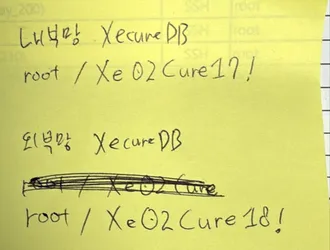 내부망 XecureDB
root / XeO2Cure17!
외부망 XecureDB
root / XeO2Cure
root / XeO2Cure18!